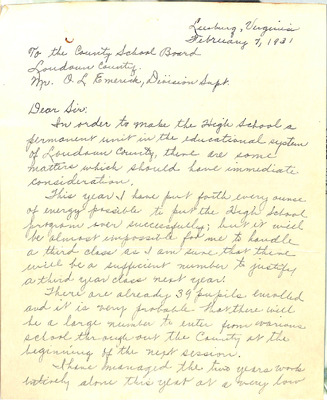 Leesburg, Virginia
February 7, 1931
To the County School Board
Loudoun County.
Mr. O. L. Emerick, Division Supt.
Dear Sir:
In order to make the High School a
permanent unit in the educational system
of Loudoun County, there are some
matters which should have immediate
consideration.
This year I have put forth every ounce
of energy possible to put the High School
program over successfully; but it will
be almost impossible for me to handle
a third class as I am sure that there
will be a sufficient number to justify
a third year class next year.
There are already 39 pupils enrolled
and it is very probable that there will
be a large number to enter from various
school through out the County at the
beginning of the next session.
I have managed the two years work
entirely alone this year at a very low